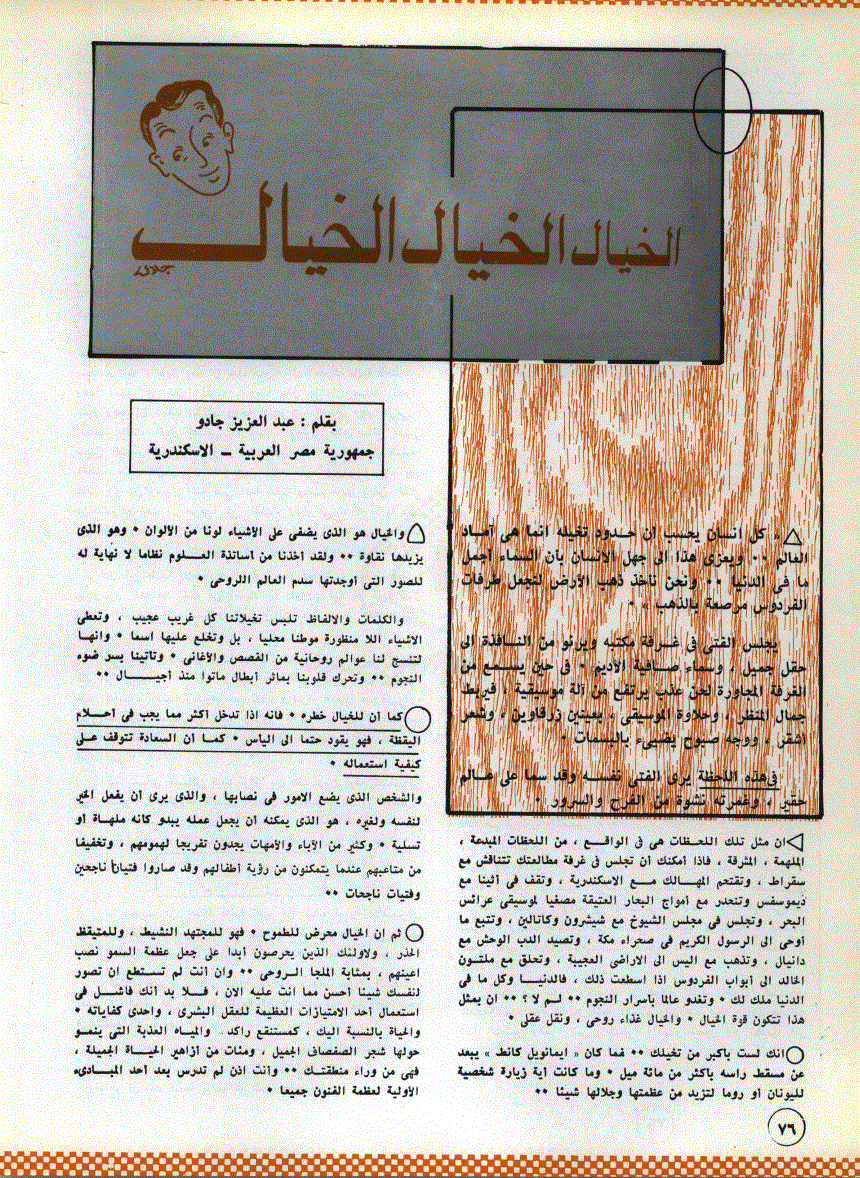 الخيال الخيال الخيال
جلال
بقلم : عبد العزيز جادو
جمهورية مصر العربية ــ الاسكندرية
« كل انسان يحسب ان حدود تخيله انما هى آماد
العالم ٠٠ ويعزى هذا الى جهل الانسان بأن السماء أجمل
ما فى الدنيا ٠٠ ونحن نأخذ ذهب الأرض لنجعل طرقات
الفردوس مرصعة بالذهب » ٠
يجلس الفتى فى غرفة مكتبه ويرنو من النافذة الى
حقل جميل ، وسماء صافية الأديم ٠ فى حين يسمع من
الغرفة المجاورة لحن عذب يرتفع من آلة موسيقية ، فيربط
جمال المنظر ، وحلاوة الموسيقى ، بعينين زرقاوين ، وشعر
أشقر ، ووجه صبوح يضيىء بالبسمات ٠
فى هذه اللحظة يرى الفتى نفسه وقد سما على عالم
حقير ، وغمرته نشوة من الفرح والسرور ٠
ان مثل تلك اللحظات هى فى الواقع ، من اللحظات المبدعة ،
الملهمة ، المشرقة ، فاذا أمكنك أن تجلس فى غرفة مطالعتك تتناقش مع
سقراط ، وتقتحم المهالك مع الاسكندرية ، وتقف فى أثينا مع
ديموسفس وتنحدر مع أمواج البحار العتيقة مصغيا لموسيقى عرائس
البحر ، وتجلس فى مجلس الشيوخ مع شيشرون وكاتالين ، وتتبع ما
أوحى الى الرسول الكريم فى صحراء مكة ، وتصيد الدب الوحش مع
دانيال ، وتذهب مع اليس الى الاراضى العجيبة ، وتحلق مع ملتون
الخالد الى أبواب الفردوس اذا اسطعت ذلك ، فالدنيا وكل ما فى
الدنيا ملك لك ٠ وتغدو عالما بأسرار النجوم ٠٠ لم لا ؟ ٠٠ ان بمثل
هذا تتكون قوة الخيال ٠ والخيال غذاء روحى ، ونقل عقلى ٠
انك لست بأكبر من تخيلك ٠٠ فما كان « ايمانويل كانط » يبعد
عن مسقط رأسه بأكثر من مائة ميل ٠ وما كانت أية زيارة شخصية
لليونان أو روما لتزيد من عظمتها وجلالها شيئا ٠٠
والخيال هو الذى يضفى على الأشياء لونا من الألوان ٠ وهو الذى
يزيدها نقاوة ٠٠ ولقد أخذنا من أساتذة العلوم نظاما لا نهاية له
للصور التى أوجدتها سدم العالم اللروحى ٠
والكلمات والالفاظ تلبس تخيلاتنا كل غريب عجيب ، وتعطى
الاشياء اللا منظورة موطنا محليا ، بل وتخلع عليها اسما ٠ وانها
لتنسج لنا عوالم روحانية من القصص والأغانى ٠ وتأتينا بسر ضوء
النجوم ٠٠ وتحرك قلوبنا بمآثر أبطال ماتوا منذ أجيال ٠٠
كما ان للخيال خطره ٠ فانه اذا تدخل أكثر مما يجب فى أحلام
اليقظة ، فهو يقود حتما الى اليأس ٠ كما ان السعادة تتوقف على
كيفية استعماله ٠
والشخص الذى يضع الامور فى نصابها ، والذى يرى أن يفعل الخير
لنفسه ولغيره ، هو الذى يمكنه أن يجعل عمله يبدو كأنه ملهاة أو
تسلية ٠ وكثير من الآباء والأمهات يجدون تفريجا لهمومهم ، وتخفيفا
من متاعبهم عندما يتمكنون من رؤية أطفالهم وقد صاروا فتيانا ناجحين
وفتيات ناجحات ٠٠
ثم ان الخيال محرض للطموح ٠ فهو للمجتهد النشيط ، وللمتيقظ
الحذر ، ولاولئك الذين يحرصون أبدا على جعل عظمة السمو نصب
أعينهم ، بمثابة الملجأ الروحى ٠٠ وان أنت لم تستطع ان تصور
لنفسك شيئا أحسن مما أنت عليه الان ، فلا بد أنك فاشل فى
استعمال أحد الامتيازات العظيمة للعقل البشرى ، واحدى كفاياته ٠
والحياة بالنسبة اليك ، كمستنقع راكد ٠ والمياه العذبة التى ينمو
حولها شجر الصفصاف الجميل ، ومئات من أزاهير الحياة الجميلة ،
فهى من وراء منطقتك ٠٠ وأنت اذن لم تدرس بعد أحد المبادىء
الأولية لعظمة الفنون جميعا ٠
٧٦